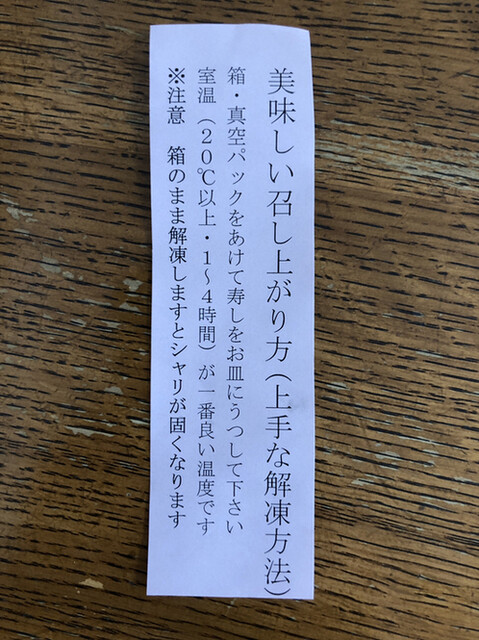 美味しい召し上がり方(上手な解凍方法)
箱・真空パックをあけて寿しをお皿にうつして下さい
室温(20℃以上・1〜4時間)が一番良い温度です
※注意 箱のまま解凍しますとシャリが固くなります